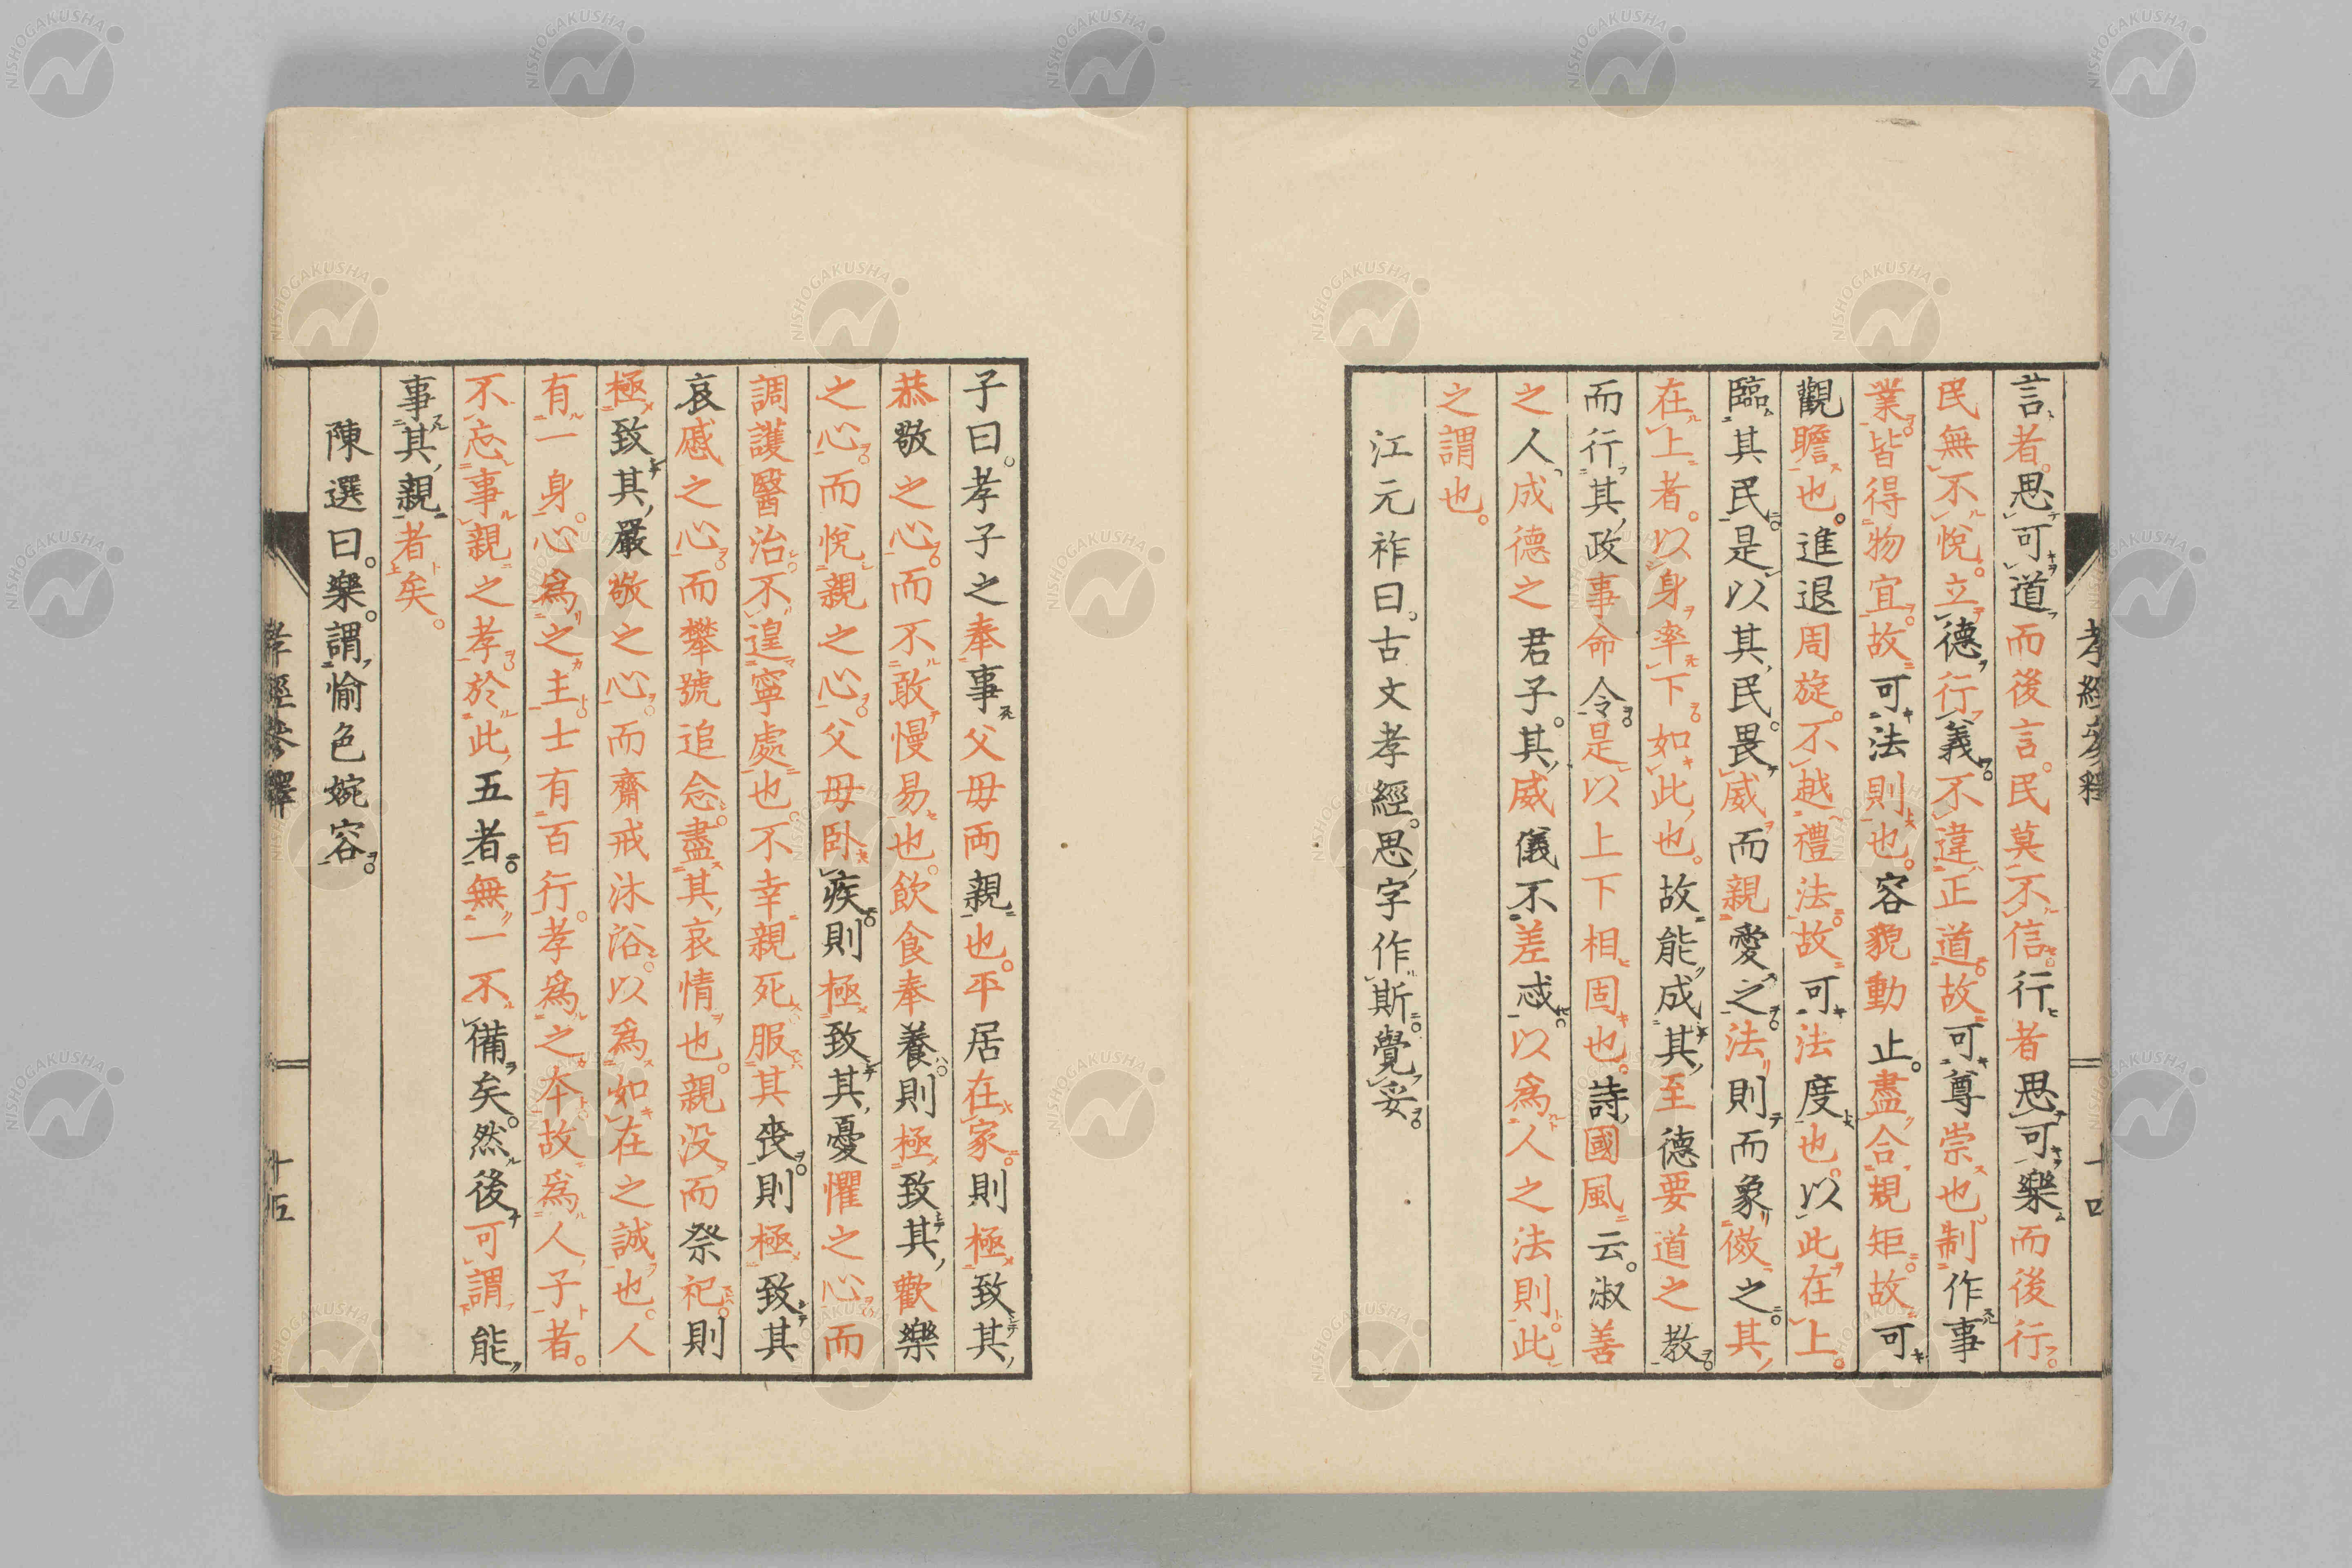 孝經參釋 十四
言者思可道而後言民莫不信行者思可樂而後行
民無不悅立德行義不違正道故可尊崇也制作事
業皆得物宜故可法則也容貌動止盡合規矩故可
觀瞻也進退周旋不越禮法故可法度也以此在上
臨其民是以其民畏威而親愛之法則而象傚之其
在上者以身率下如此也故能成其至德要道之教
而行其政事命令是以上下相固也詩國風云淑善
之人成德之君子其威儀不差忒以爲人之法則此
之謂也
江元祚曰古文孝經思字作斯覺妥
子曰孝子之奉事父母両親也平居在家則極致其
恭敬之心而不敢慢易也飲食奉養則極致其歡樂
之心而悅親之心父母臥疾則極致其憂懼之心而
調護醫治不遑寧處也不幸親死服其喪則極致其
哀慼之心而攀號追念盡其哀情也親没而祭祀則
極致其嚴敬之心而齋戒沐浴以爲如在之誠也人
有一身心爲之主士有百行孝爲之本故爲人子者
不忘事親之孝於此五者無一不備矣然後可謂能
事其親者矣
陳選曰樂謂愉色婉容
孝經參釋 十五
NISHOGAKUSHA